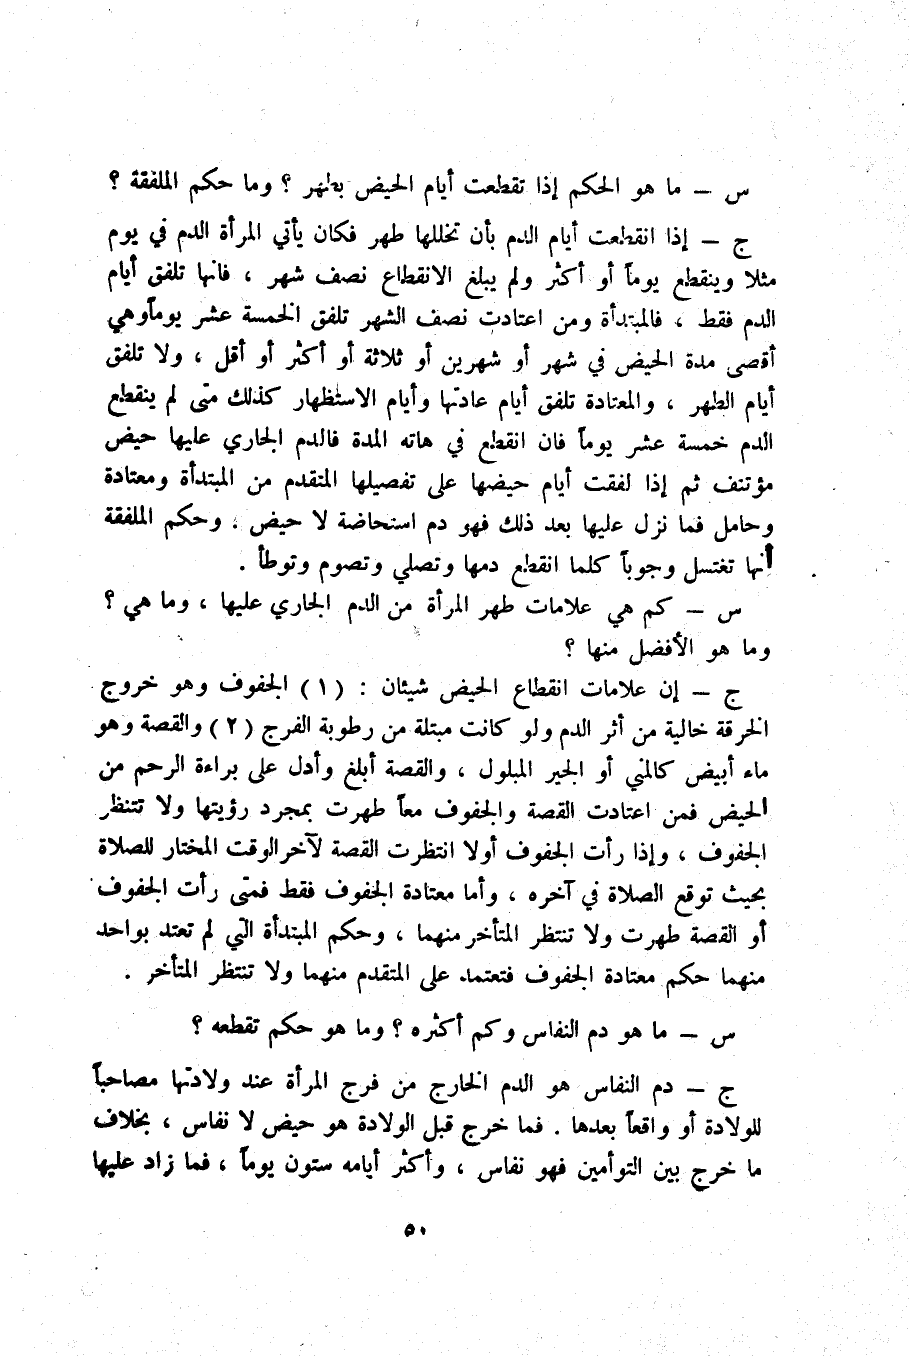 س — ما هو الحكم إذا تقطعت أيام الحيض بطهر ؟ وما حكم الملفقة ؟
ج — إذا انقطعت أيام الدم بأن تخللها طهر فكان يأتي المرأة الدم في يوم
مثلا وينقطع يوماً أو أكثر ولم يبلغ الانقطاع نصف شهر ، فانها تلفق أيام
الدم فقط ، فالمبتدأة ومن اعتادت نصف الشهر تلفق الخمسة عشر يوماًوهي
أقصى مدة الحيض في شهر أو شهرين أو ثلاثة أو أكثر أو أقل ، ولا تلفق
أيام الطهر ، والمعتادة تلفق أيام عادتها وأيام الاستظهار كذلك متى لم ينقطع
الدم خمسة عشر يوماً فان انقطع في هاته المدة فالدم الجاري عليها حيض
مؤتنف ثم إذا لفقت أيام حيضها على تفصيلها المتقدم من المبتدأة ومعتادة
وحامل فما نزل عليها بعد ذلك فهو دم استحاضة لا حيض ، وحكم الملفقة
أنها تغتسل وجوباً كلما انقطع دمها وتصلي وتصوم وتوطأ .
س — كم هي علامات طهر المرأة من الدم الجاري عليها ، وما هي ؟
وما هو الأفضل منها ؟
ج — إن علامات انقطاع الحيض شيئان : (١) الجفوف وهو خروج
الخرقة خالية من أثر الدم ولو كانت مبتلة من رطوبة الفرج (٢) والقصة وهو
ماء أبيض كالمني أو الجير المبلول ، والقصة أبلغ وأدل على براءة الرحم من
الحيض فمن اعتادت القصة والجفوف معاً طهرت بمجرد رؤيتها ولا تنتظر
الجفوف ، وإذا رأت الجفوف أولا انتظرت القصة لآخرالوقت المختار للصلاة
بحيث توقع الصلاة في آخره ، وأما معتادة الجفوف فقط فمتى رأت الجفوف
أو القصة طهرت ولا تنتظر المتأخر منهما ، وحكم المبتدأة التي لم تعتد بواحد
منهما حكم معتادة الجفوف فتعتمد على المتقدم منهما ولا تنتظر المتأخر .
س — ما هو دم النفاس وكم أكثره ؟ وما هو حكم تقطعه ؟
ج — دم النفاس هو الدم الخارج من فرج المرأة عند ولادتها مصاحباً
للولادة أو واقعاً بعدها . فما خرج قبل الولادة هو حيض لا نفاس ، بخلاف
ما خرج بين التوأمين فهو نفاس ، وأكثر أيامه ستون يوماً ، فما زاد عليها
٥٠